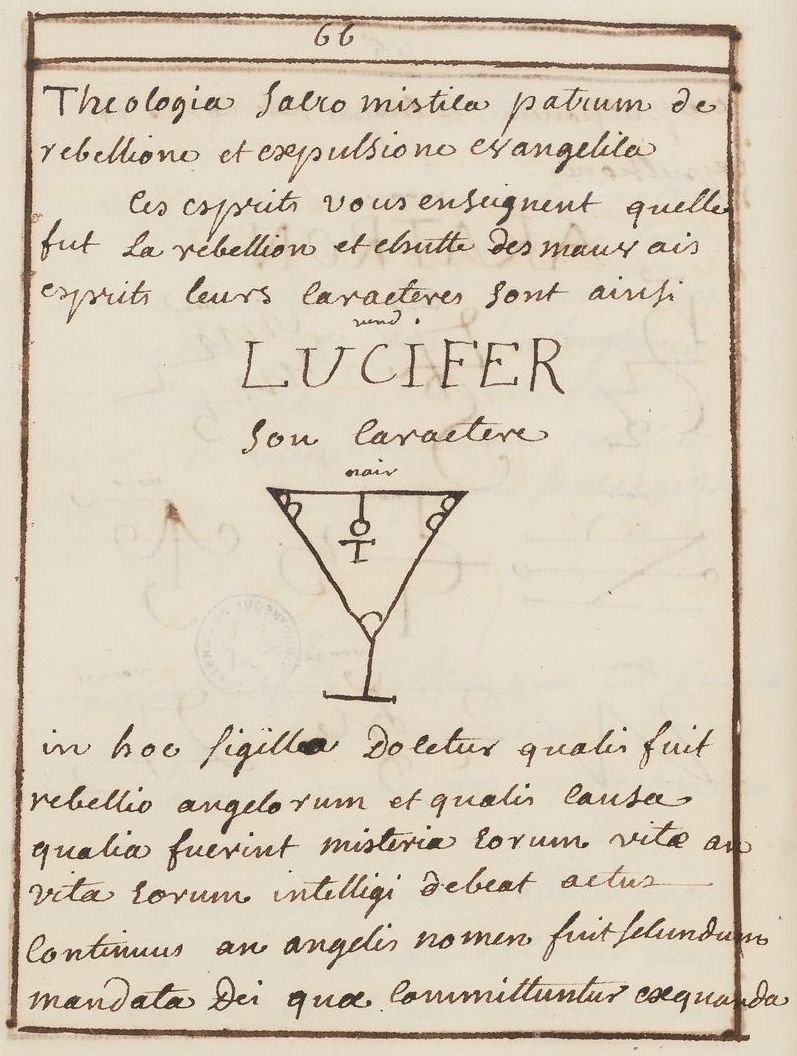 66
Theologia sacro mistica patrum de
rebellione et expulsione evangelica
Ces esprits vous enseignent quelle
fut la rebellion et chutte des mauvais
esprits leurs caracteres sont ainsi
LUCIFER
son caractere
noir
in hoc sigillo Docetur qualis fuit
rebellio angelorum et qualis causa
qualia fuerint misteria eorum vitæ an
vita eorum intelligi debeat actus
continuus an angelis nomen fuit secundum
mandata Dei quæ committuntur exequenda